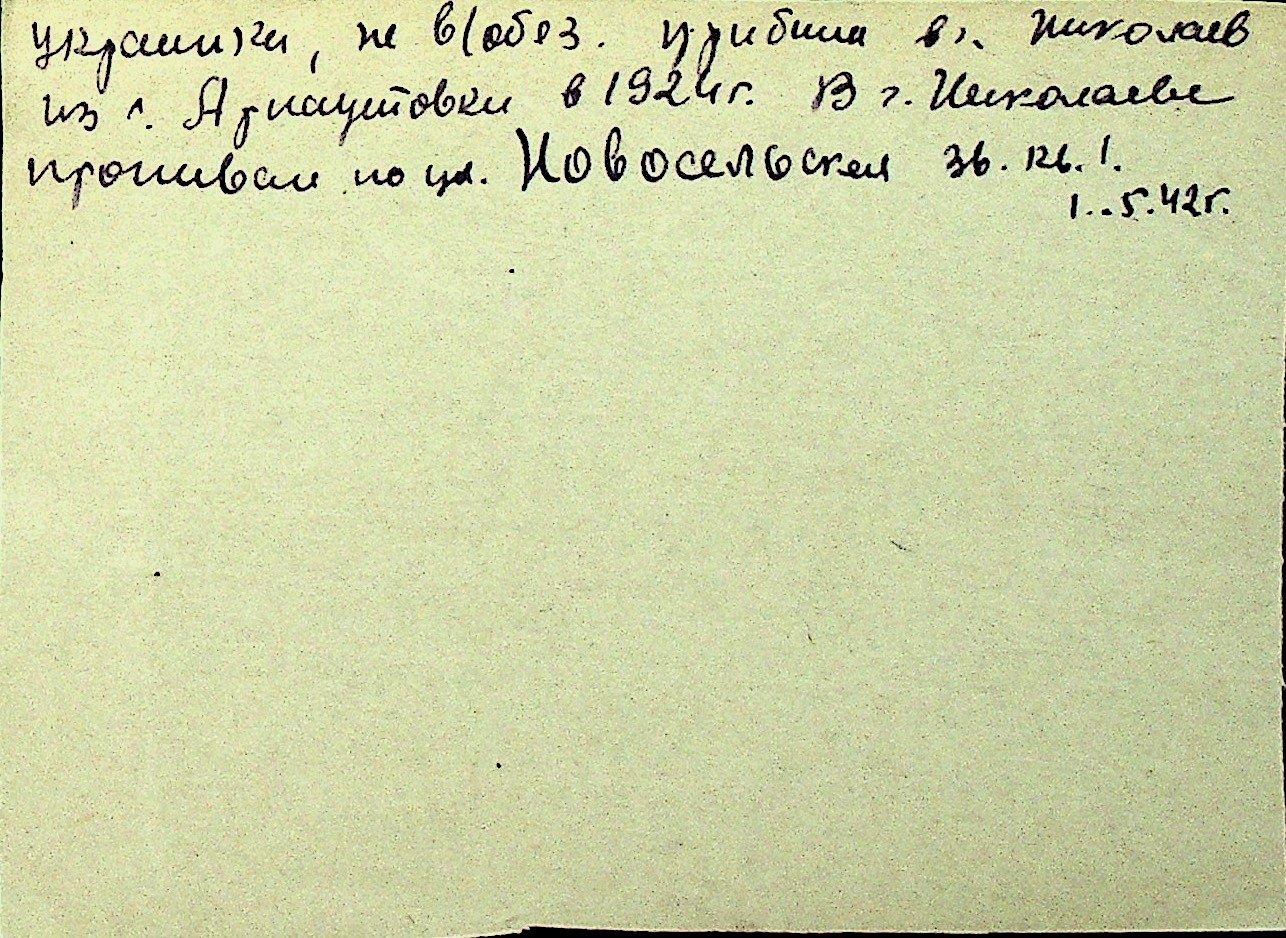 украинки, не в/обяз. прибыл в г. Николаев
из г. Арнаутовки в 1924г. В г. Николаеве
проживал по ул. Новосельская 36. кв. 1.
1..5.42г.